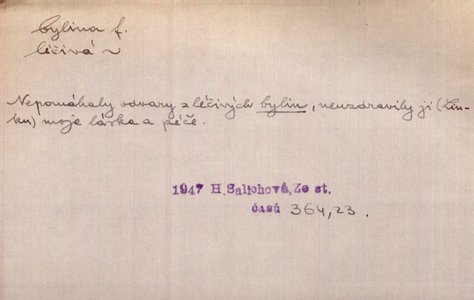 bylina f.
léčivá ~
Nepomáhaly odvary z léčivých bylin, neuzdravily ji (Lin-
ku) moje láska a péče.
1947 H.Salichová,Ze st.
časů 364,23.